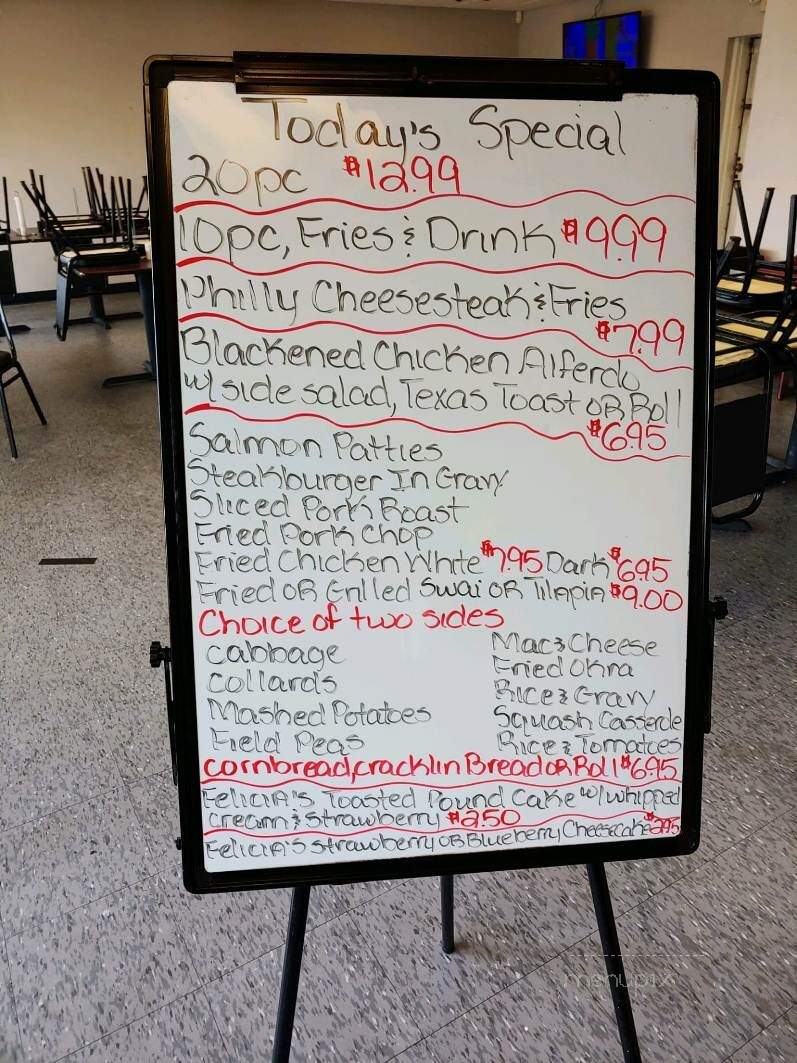 Today's Special
20pc $12.99
10pc, Fries & Drink $9.99
Philly Cheesesteak & Fries
$7.99
Blackened Chicken Alferdo
w/ side salad, Texas Toast OR Roll
$6.95
Salmon Patties
Steakburger In Gravy
Sliced Pork Roast
Fried Pork Chop
Fried Chicken White $7.95 Dark $6.95
Fried OR Grilled Swai OR Tilapia $9.00
Choice of two sides
Cabbage
Collards
Mashed Potatoes
Field Peas
Mac & Cheese
Fried Okra
Rice & Gravy
Squash Casserole
Rice & Tomatoes
cornbread, cracklin Bread OR Roll $6.95
Felicia's Toasted Pound Cake w/ whipped
cream & strawberry $2.50
Felicia's Strawberry OR Blueberry Cheesecake $2.95
menupix